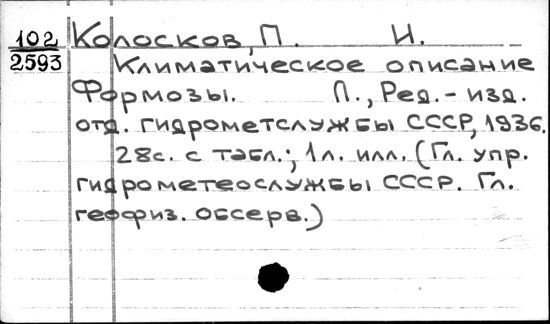 102
2593
Колосков, П. И.
Климатическое описание
Формозы. Л., Ред.-изд.
отд. гидрометслужбы СССР, 1936.
28с. с табл.; 1л. илл. (Гл. упр.
гидрометеослужбы СССР. Гл.
геофиз. обсерв.)